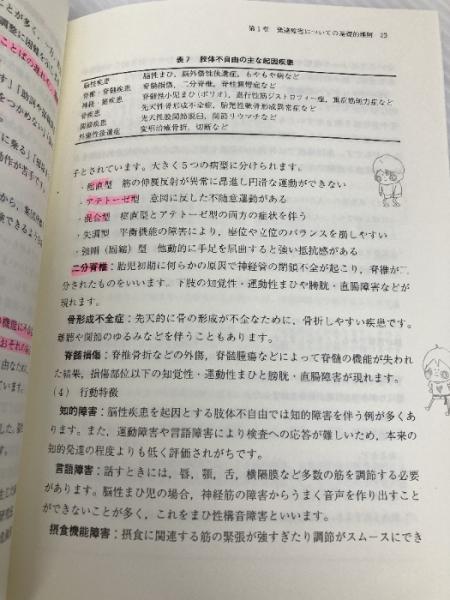 第1章 発達障害についての基礎的理解 25
表7 肢体不自由の主な起因疾患
脳性疾患 脳性まひ，脳外傷性後遺症，もやもや病など
脊椎・脊髄疾患 脊髄損傷，二分脊椎，脊柱側弯症など
神経・筋疾患 脊髄性小児まひ（ポリオ），進行性筋ジストロフィー症，重症筋無力症など
骨疾患 先天性骨形成不全症，胎児性軟骨形成異常症など
関節疾患 先天性股関節脱臼，関節リウマチなど
外傷性後遺症 変形治癒骨折，切断など
子とされています。大きく5つの病型に分けられます。
・痙直型 筋の伸展反射が異常に昂進し円滑な運動ができない
・アテトーゼ型 意図に反した不随意運動がある
・混合型 痙直型とアテトーゼ型の両方の症状を伴う
・失調型 平衡機能の障害により，座位や立位のバランスを崩しやすい
・強剛（固縮）型 他動的に手足を屈曲すると強い抵抗感がある
二分脊椎：胎児初期に何らかの原因で神経管の閉鎖不全が起こり，脊椎が二
分されたものをいいます。下肢の知覚性・運動性まひや膀胱・直腸障害などが
現れます。
骨形成不全症：先天的に骨の形成が不全なために，骨折しやすい疾患です。
難聴や関節のゆるみなどを伴うこともあります。
脊髄損傷：脊椎骨折などの外傷，脊髄腫瘍などによって脊髄の機能が失われ
た結果，損傷部位以下の知覚性・運動性まひと膀胱・直腸障害が現れます。
(4) 行動特徴
知的障害：脳性疾患を起因とする肢体不自由では知的障害を伴う例が多くあ
ります。また，運動障害や言語障害により検査への応答が難しいため，本来の
知的発達の程度よりも低く評価されがちです。
言語障害：話すときには，唇，顎，舌，横隔膜など多数の筋を調節する必要
があります。脳性まひ児の場合，神経筋の障害からうまく音声を作り出すこと
ができないことが多く，これをまひ性構音障害といいます。
摂食機能障害：摂食に関連する筋の緊張が強すぎたり調節がスムースにでき